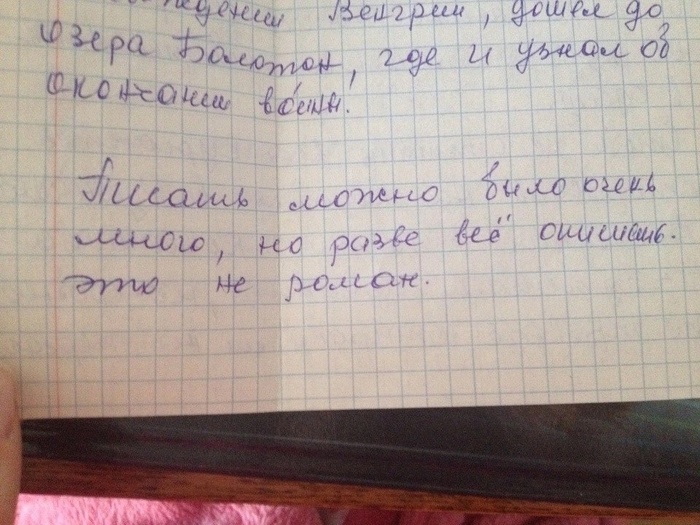 Венгрии, дошел до
озера Балотон, где и узнал об
окончании войны.
Писать можно было очень
много, но разве всё опишешь.
это не роман.